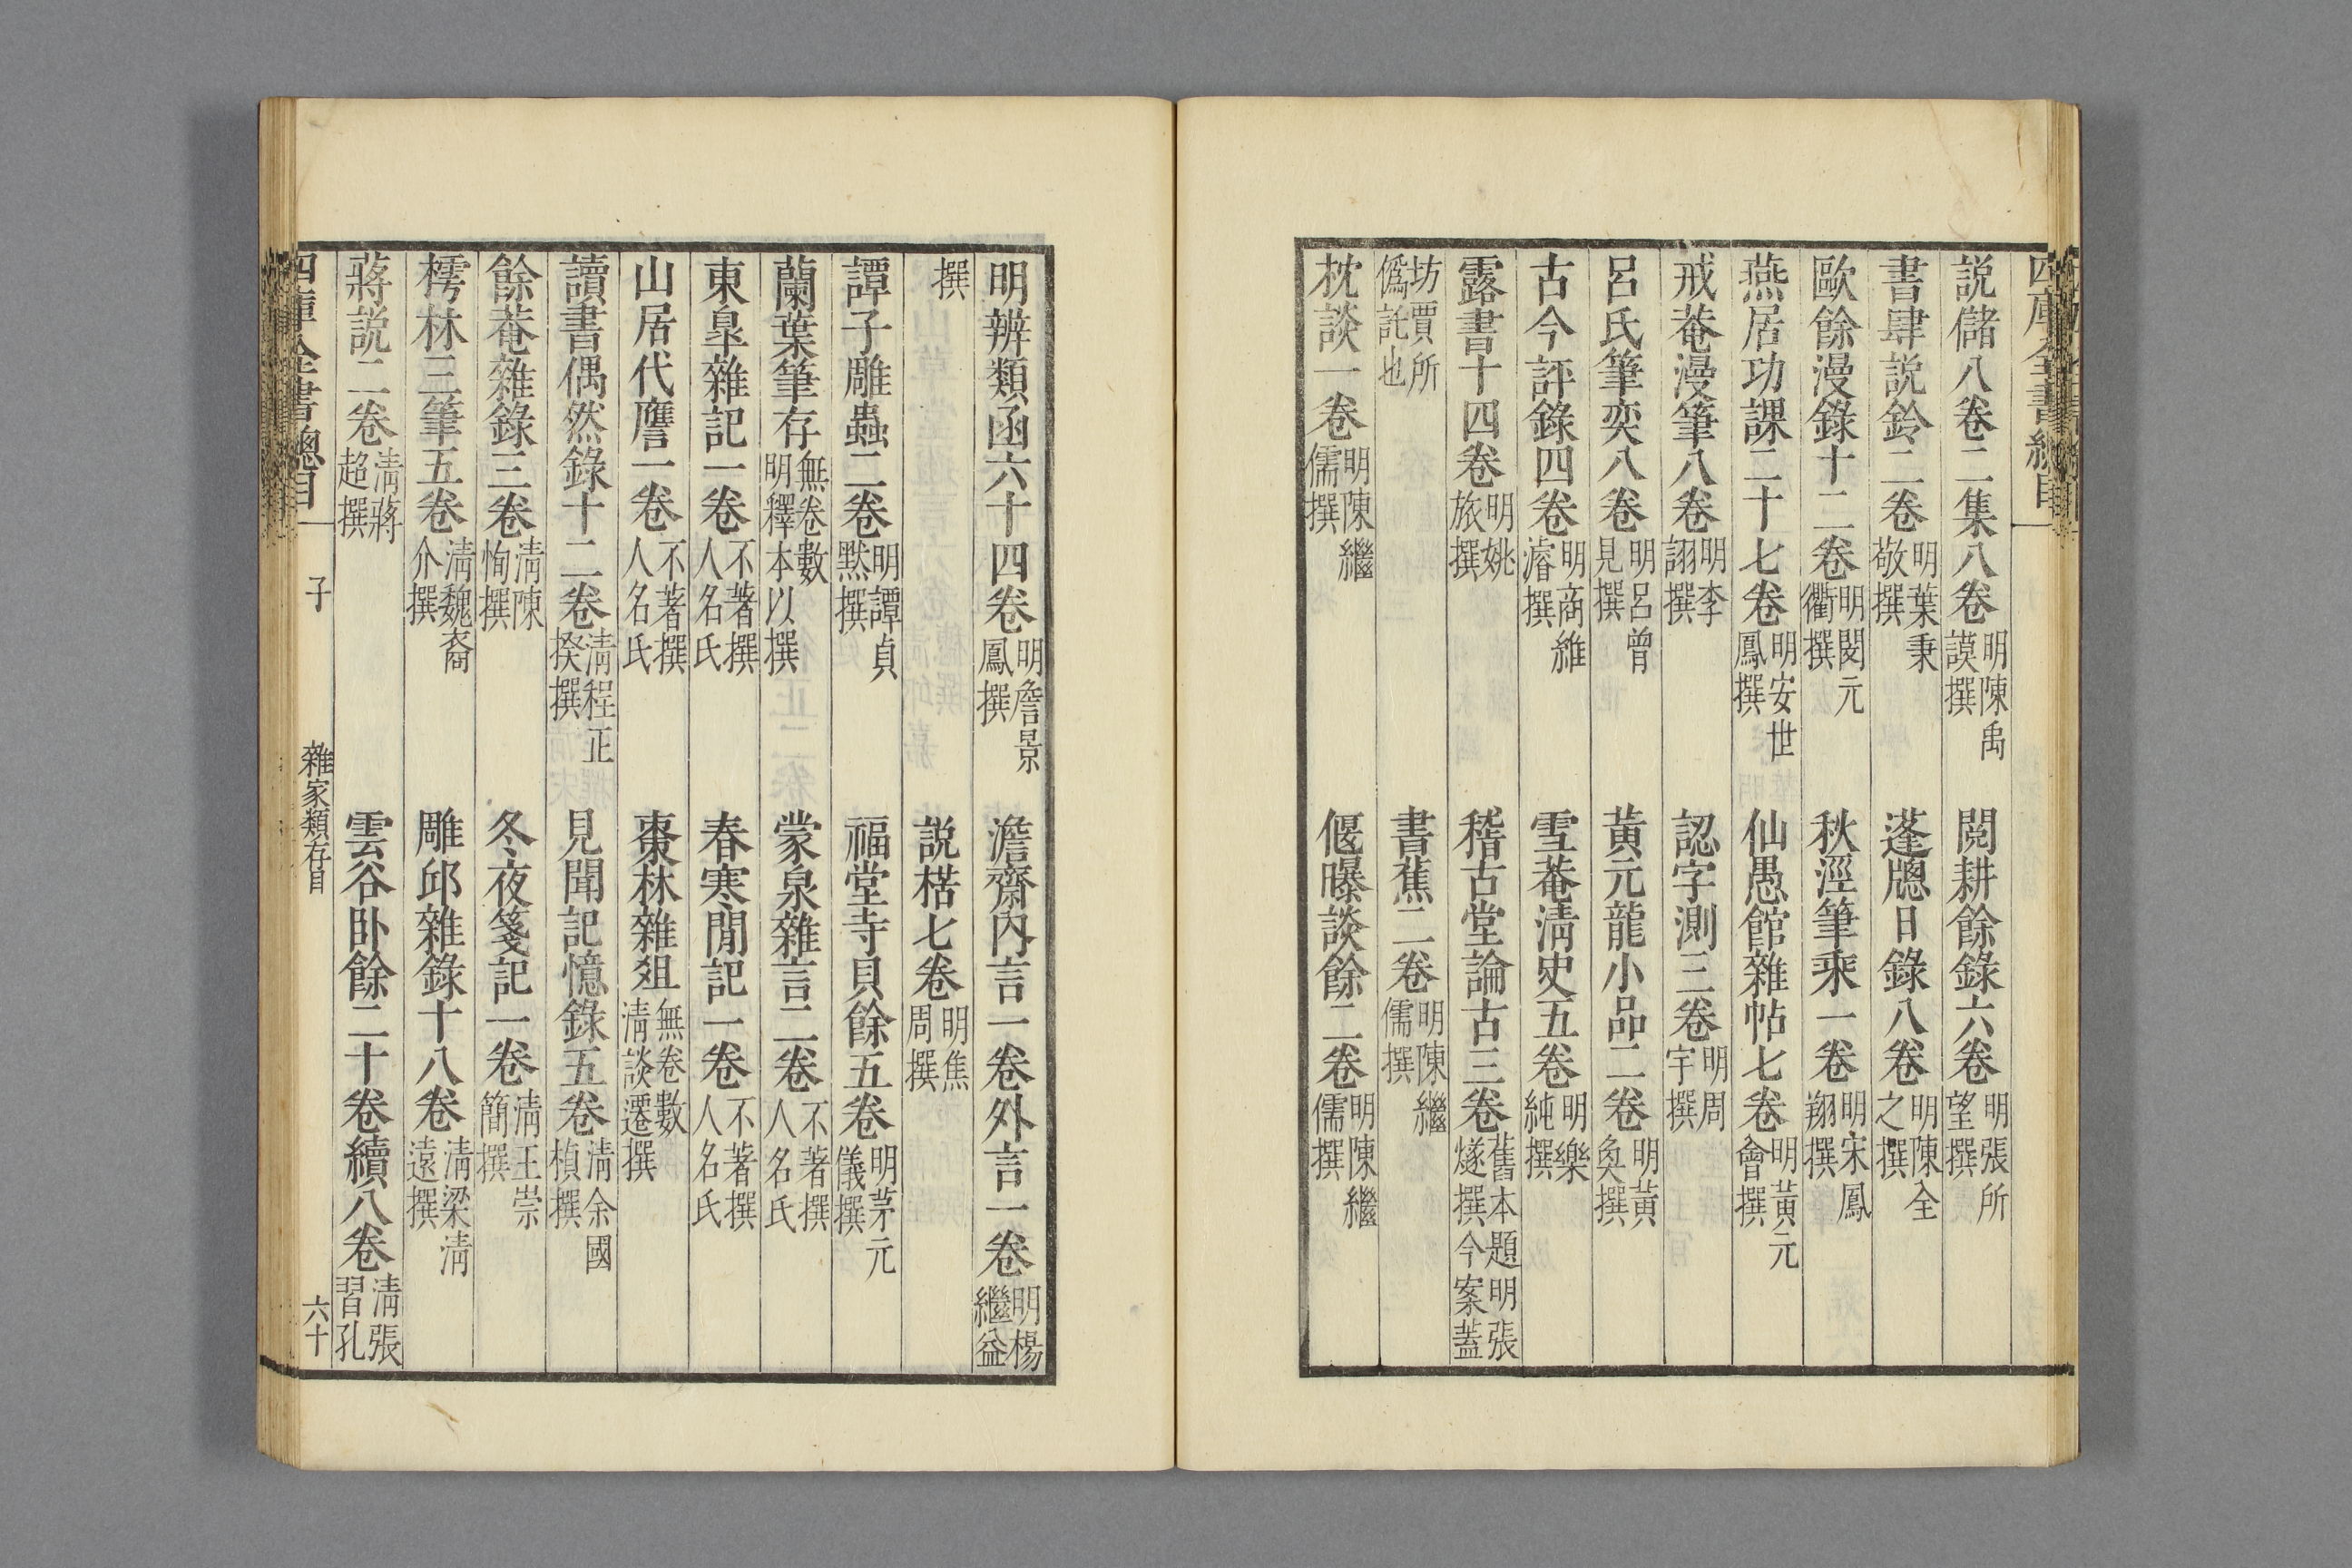 四庫全書總目
說儲八卷二集八卷 明陳禹謨撰 閱耕餘錄六卷 明張所望撰
書肆說鈴二卷 明葉秉敬撰 蓬牕日錄八卷 明陳全之撰
歐餘漫錄十二卷 明閔元衢撰 秋涇筆乘一卷 明宋鳳翔撰
燕居功課二十七卷 明安世鳳撰 仙愚館雜帖七卷 明黃元會撰
戒菴漫筆八卷 明李詡撰 認字測三卷 明周宇撰
呂氏筆奕八卷 明呂曾見撰 黃元龍小品二卷 明黃奐撰
古今評錄四卷 明商維濬撰 雪菴淸史五卷 明樂純撰
露書十四卷 明姚旅撰 稽古堂論古三卷 舊本題明張燧撰今案蓋
坊賈所僞託也 書蕉二卷 明陳繼儒撰
枕談一卷 明陳繼儒撰 偃曝談餘二卷 明陳繼儒撰
明辨類函六十四卷 明詹景鳳撰 澹齋內言一卷外言一卷 明楊繼益
撰 說楛七卷 明焦周撰
譚子雕蟲二卷 明譚貞默撰 福堂寺貝餘五卷 明茅元儀撰
蘭葉筆存 無卷數明釋本以撰 蒙泉雜言二卷 不著撰人名氏
東皐雜記一卷 不著撰人名氏 春寒閒記一卷 不著撰人名氏
山居代譍一卷 不著撰人名氏 棗林雜俎 無卷數淸談遷撰
讀書偶然錄十二卷 淸程正揆撰 見聞記憶錄五卷 淸余國楨撰
餘菴雜錄三卷 淸陳恂撰 冬夜箋記一卷 淸王崇簡撰
樗林三筆五卷 淸魏裔介撰 雕邱雜錄十八卷 淸梁淸遠撰
蔣說二卷 淸蔣超撰 雲谷卧餘二十卷續八卷 淸張習孔
四庫全書總目 子 雜家類存目 六十